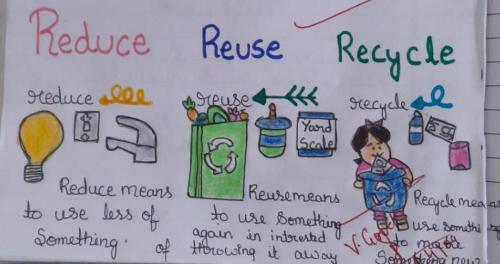 Reduce Reuse Recycle
reduce reuse recycle
Yard
Scale
Reduce means
to use less of
Something.
Reuse means
to use Something
again in intrested
of throwing it away
Recycle means
use somthing
to make
Something new